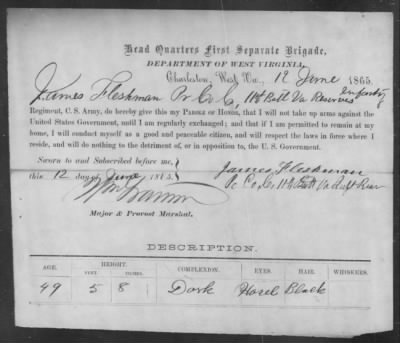 Head Quarters First Separate Brigade,
DEPARTMENT OF WEST VIRGINIA,
Charleston, West Va., 12 June 1865.
I, James Fleshman Pv Co C, 11th Batt Va Reserves Infantry
Regiment, U. S. Army, do hereby give this my PAROLE OF HONOR, that I will not take up arms against the
United States Government, until I am regularly exchanged; and that if I am permitted to remain at my
home, I will conduct myself as a good and peaceable citizen, and will respect the laws in force where I
reside, and will do nothing to the detriment of, or in opposition to, the U. S. Government.
Sworn to and Subscribed before me,
this 12 day of June 1865.
James Fleshman
Co. 11th Batt Va
Major & Provost Marshal.
DESCRIPTION.
AGE. HEIGHT. COMPLEXION. EYES. HAIR. WHISKERS.
FEET INCHES
49 5 8 Dark Hazel Black